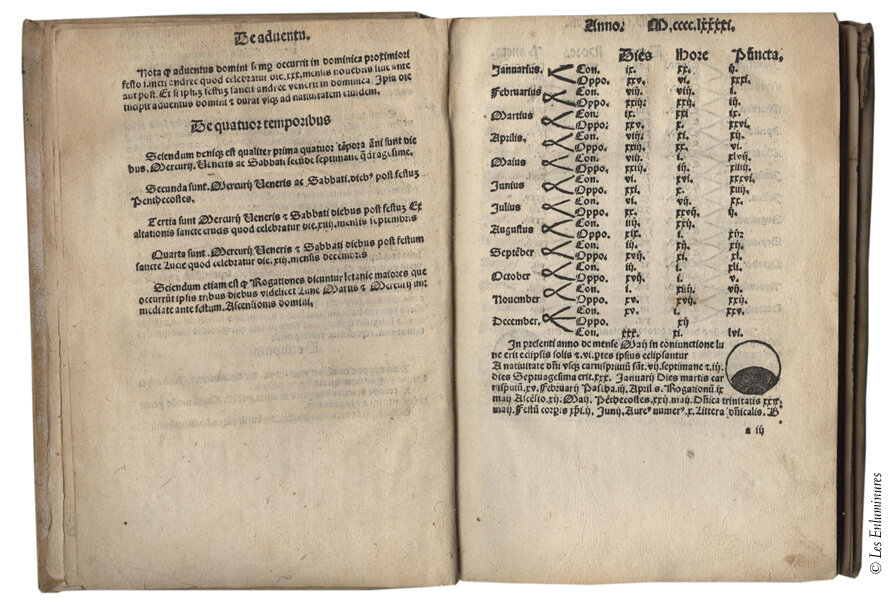 De aduentu.
Nota ꝙ aduentus domini semꝑ occurrit in dominica proximiori
festo sancti andree quod celebratur die .xxx. mensis nouēbris siue ante
aut post. Et si ipsuꝫ festuꝫ sancti andree venerit in dominica. Ipsa die
incipit aduentus domini ⁊ durat vsqꝫ ad natiuitatem eiusdem.
De quatuor temporibus
Sciendum deniqꝫ est qualiter prima quatuor tꝑora āni sunt die
bus. Mercurij Ueneris ac Sabbati secūde septimane q̄dragesime.
Secunda sunt. Mercurij Ueneris ac Sabbati. diebꝰ post festuꝫ
Penthecostes.
Tertia sunt Mercurij Ueneris ⁊ Sabbati diebus post festuꝫ Ex
altationis sancte crucis quod celebratur die .xiiij. mensis septembris
Quarta sunt. Mercurij Ueneris ⁊ Sabbati diebus post festum
sancte Lucie quod celebratur die .xiij. mensis decembris
Sciendum etiam est ꝙ Rogationes dicuntur letanie maiores que
occurrūt ipsis tribus diebus videlicet Lune Martis ⁊ Mercurij im
mediate ante festum. Ascensionis domini.
Anno: M.cccc.lxxxxi.
Dies Hore Pūcta.
Januarius. Con. ix. xx. ij.
Oppo. xxv. vi. xxxi.
Februarius Con. viij. viij. i.
Oppo: xxiij: xxij. ij.
Martius Con. ix. xxi ix.
Oppo: xxv. x. xxvi.
Aprilis. Con. viij. xi.
Oppo.
Maius Con. viij. i. xlvij.
Oppo: xxiij. iij.
Junius Con. vi. xv. xxxvi.
Oppo: xxi. x. xiiij.
Julius Con. vi. vij. xx.
Oppo: xx. xxvij. ij.
Augustus Con. iiij. xxij.
Oppo: xix. i.
Septēber Con. iij. xij. xij.
Oppo: xvij. i. xli.
October Con. iij. i. v.
Oppo xvij. i.
Nouember Con. i. xiiij. vij.
Oppo. xv. xvij. xxij.
December. Oppo. xv. xij
Con. xxx. xi. lvi.
In presenti anno de mense Maij in coniunctione lu
ne erit eclipsis solis ⁊ .vi. ꝑtes ipsius eclipsantur
A natiuitate dn̄i vsqꝫ carnispriuiū sūt .vij. septimane ⁊ .iij.
dies Septuagesima erit .xxx. Januarij Dies martis car
nispriuiū .xv. Februarij Pascha .iij. April s. Rogationū ix
maij Ascēsio .xij. Maij. Pēthecostes .xxij. maij. Dn̄ica trinitatis xxix
maij. Festū corpꝑis xp̄i .ij. Junij. Aureꝰ numerꝰ .x. Littera dn̄icalis. B
a iij
© Les Enluminures